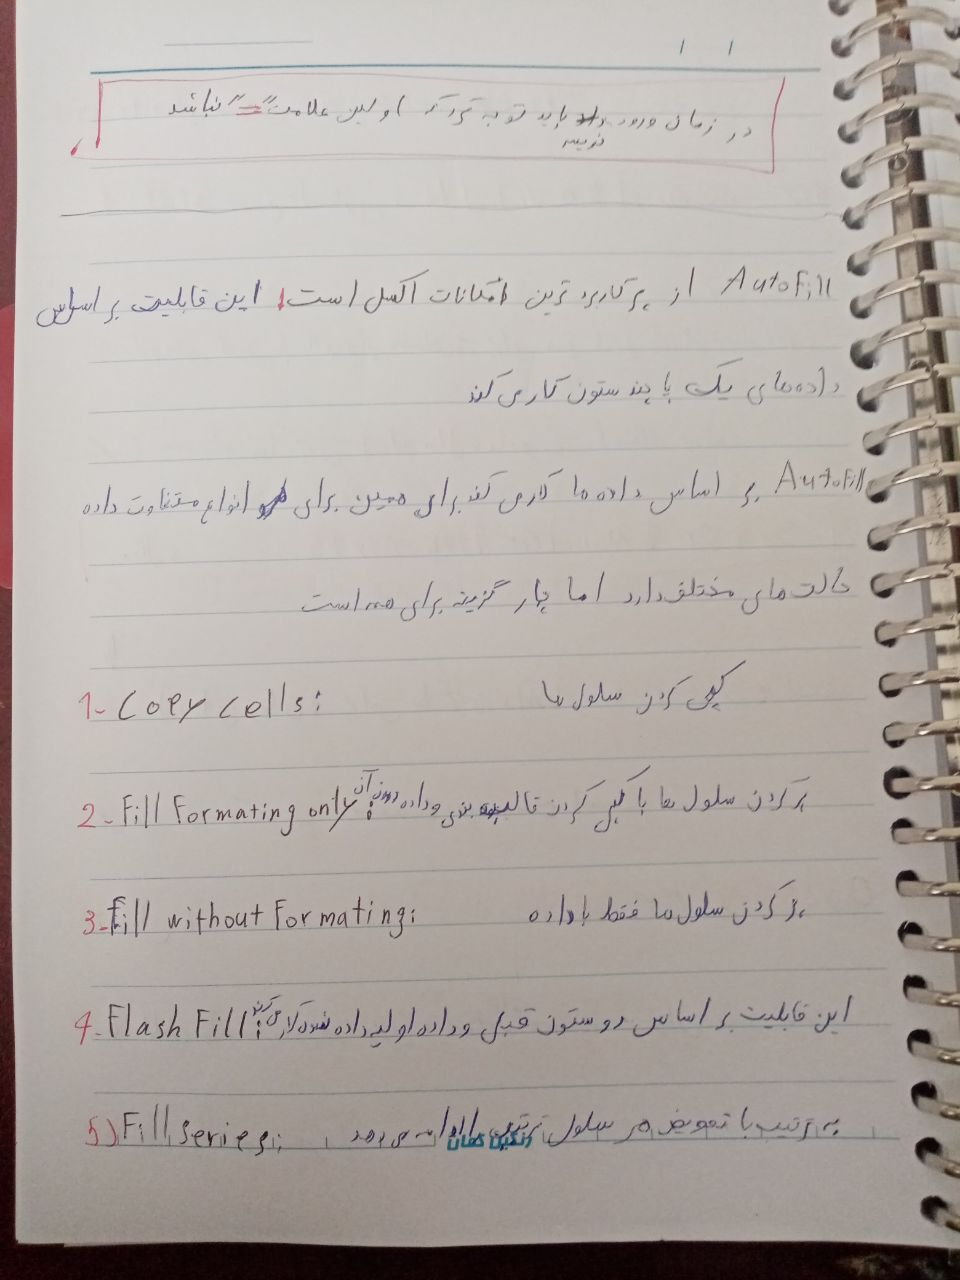 در زمان ورود باید توجه کرد که اولین علامت "=" نباشد
AutoFill از پر کاربرد ترین امکانات اکسل است! این قابلیت بر اساس
داده‌های یک یا چند ستون کار می کند
AutoFill بر اساس داده ها کار می کند برای همین برای انواع متفاوت داده
حالت های مختلف دارد اما چهار گزینه برای همه است
1- Copy cells: کپی کردن سلول ها
2- Fill Formating only: پر کردن سلول ها با کپی کردن قالب بندی و داده درون آن
3- Fill without Formating: پر کردن سلول ها فقط با داده
4- Flash Fill: این قابلیت بر اساس دو ستون قبل و داده اولیه داده شده کار می کند
5) Fill series: به ترتیب با تعویض هر سلول ترتیب را ادامه می دهد